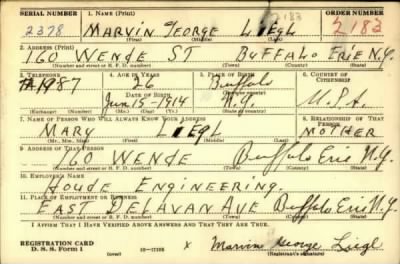 SERIAL NUMBER 1. NAME (Print) ORDER NUMBER
2378 MARVIN GEORGE LIEGL 2183 2183
(First) (Middle) (Last)
2. ADDRESS (Print)
160 WENDE ST BUFFALO ERIE N.Y.
(Number and street or R. F. D. number) (Town) (County) (State)
3. TELEPHONE 4. AGE IN YEARS 5. PLACE OF BIRTH 6. COUNTRY OF CITIZENSHIP
26 Buffalo
DATE OF BIRTH
June-15-1914 N.Y. U.S.A.
(Exchange) (Number) (Mo.) (Day) (Yr.) (State or country)
7. NAME OF PERSON WHO WILL ALWAYS KNOW YOUR ADDRESS 8. RELATIONSHIP OF THAT PERSON
MARY LIEGL MOTHER
(Mr., Mrs., Miss) (First) (Middle) (Last)
9. ADDRESS OF THAT PERSON
160 WENDE Buffalo Erie N.Y.
(Number and street or R. F. D. number) (Town) (County) (State)
10. EMPLOYER'S NAME
HOUDE ENGINEERING.
11. PLACE OF EMPLOYMENT OR BUSINESS
EAST DELAVAN AVE Buffalo Erie N.Y.
(Number and street or R. F. D. number) (Town) (County) (State)
I AFFIRM THAT I HAVE VERIFIED ABOVE ANSWERS AND THAT THEY ARE TRUE.
REGISTRATION CARD x Marvin George Liegl
D. S. S. Form 1 (over) (Registrant's signature)